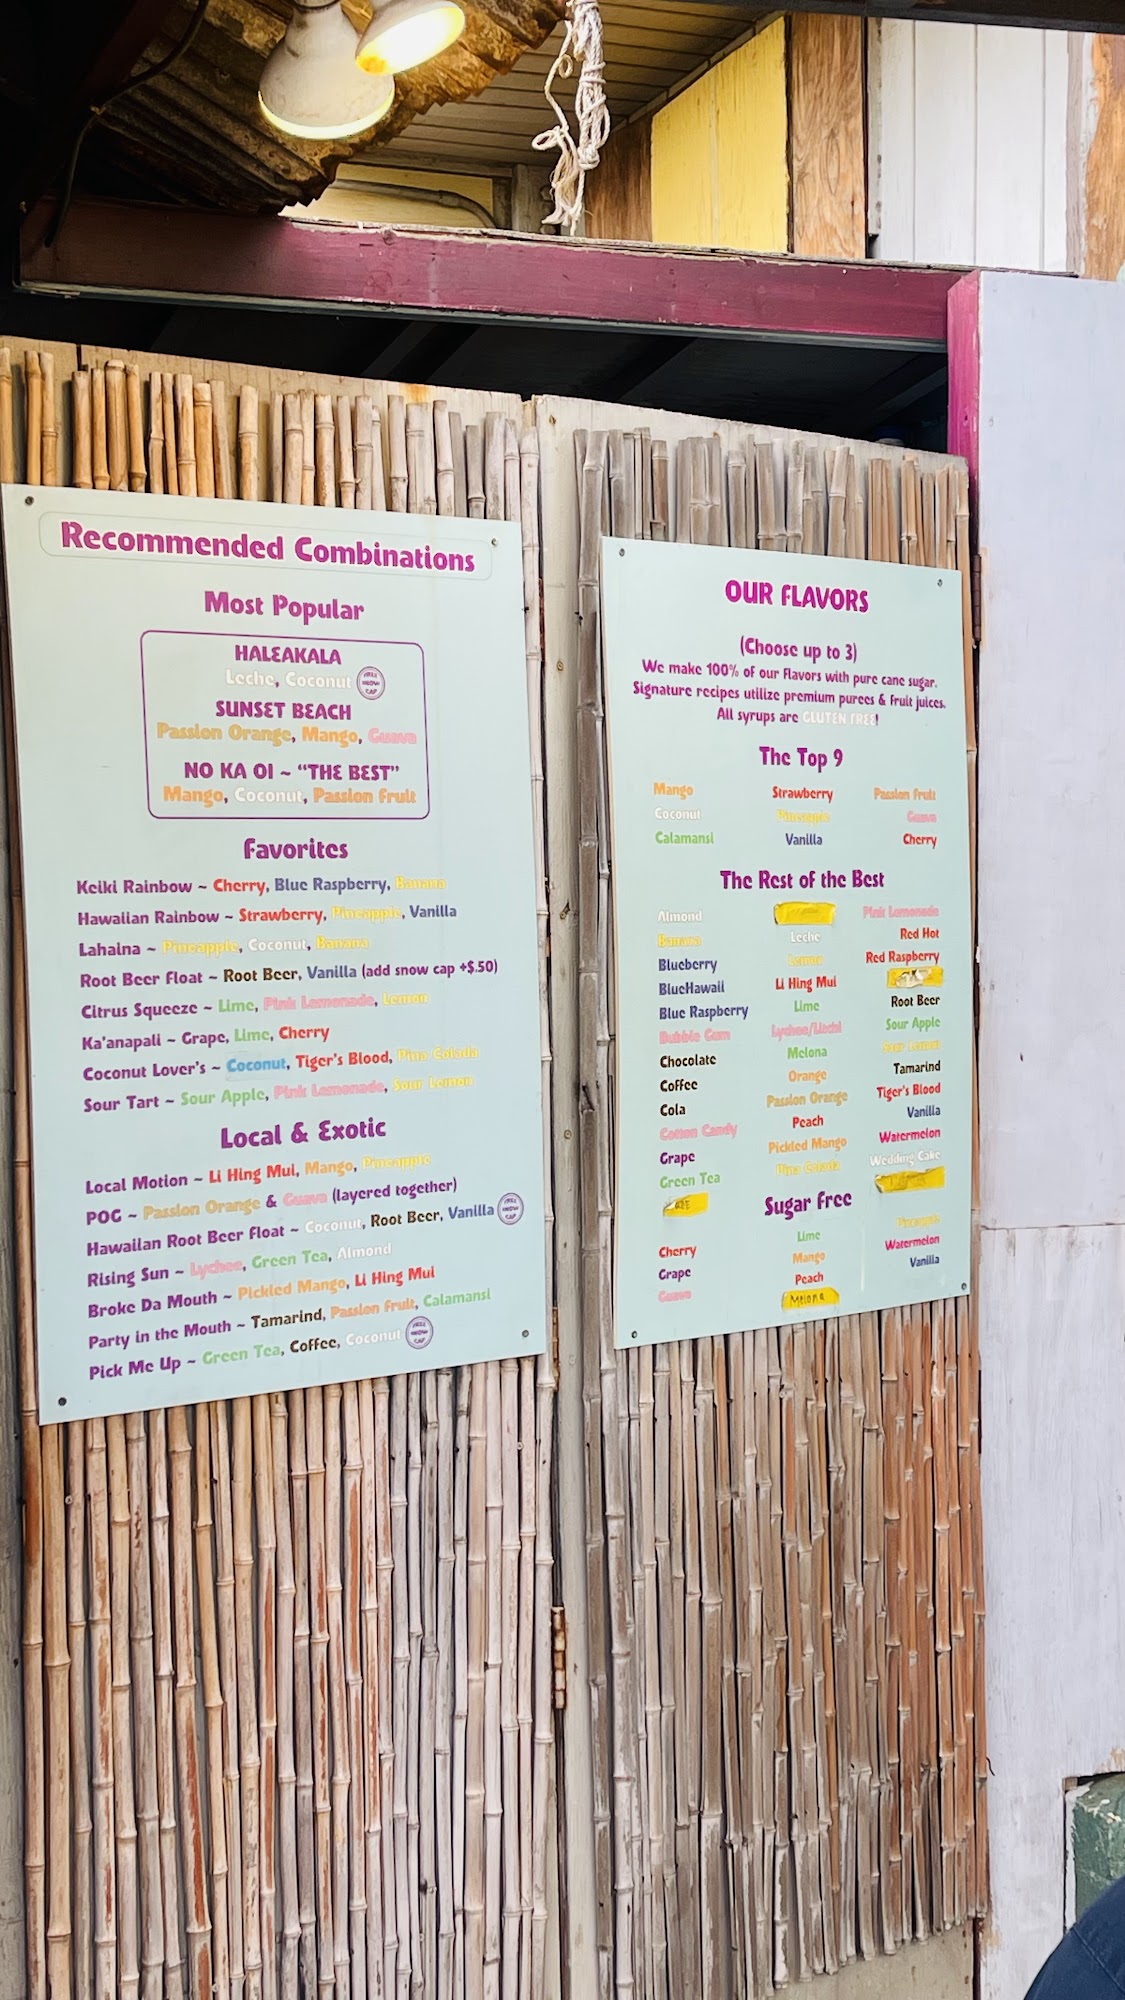 Recommended Combinations
Most Popular
HALEAKALA
Leche, Coconut FREE SNOW CAP
SUNSET BEACH
Passion Orange, Mango, Guava
NO KA OI ~ “THE BEST”
Mango, Coconut, Passion Fruit
Favorites
Keiki Rainbow ~ Cherry, Blue Raspberry, Banana
Hawaiian Rainbow ~ Strawberry, Pineapple, Vanilla
Lahaina ~ Pineapple, Coconut, Banana
Root Beer Float ~ Root Beer, Vanilla (add snow cap +$.50)
Citrus Squeeze ~ Lime, Pink Lemonade, Lemon
Ka'anapali ~ Grape, Lime, Cherry
Coconut Lover's ~ Coconut, Tiger's Blood, Pina Colada
Sour Tart ~ Sour Apple, Pink Lemonade, Sour Lemon
Local & Exotic
Local Motion ~ Li Hing Mui, Mango, Pineapple
POG ~ Passion Orange & Guava (layered together)
Hawaiian Root Beer Float ~ Coconut, Root Beer, Vanilla FREE SNOW CAP
Rising Sun ~ Lychee, Green Tea, Almond
Broke Da Mouth ~ Pickled Mango, Li Hing Mui
Party in the Mouth ~ Tamarind, Passion Fruit, Calamansi
Pick Me Up ~ Green Tea, Coffee, Coconut FREE SNOW CAP
OUR FLAVORS
(Choose up to 3)
We make 100% of our Flavors with pure cane sugar.
Signature recipes utilize premium purees & fruit juices.
All syrups are GLUTEN FREE!
The Top 9
Mango Strawberry Passion Fruit
Coconut Pineapple Guava
Calamansi Vanilla Cherry
The Rest of the Best
Almond
Banana
Blueberry
BlueHawaii
Blue Raspberry
Bubble Gum
Chocolate
Coffee
Cola
Cotton Candy
Grape
Green Tea
Leche
Lemon
Li Hing Mui
Lime
Lychee/Litchi
Melona
Orange
Passion Orange
Peach
Pickled Mango
Pina Colada
Pink Lemonade
Red Hot
Red Raspberry
Root Beer
Sour Apple
Sour Lemon
Tamarind
Tiger's Blood
Vanilla
Watermelon
Wedding Cake
Sugar Free
Cherry
Grape
Guava
Lime
Mango
Peach
Melona
Pineapple
Watermelon
Vanilla